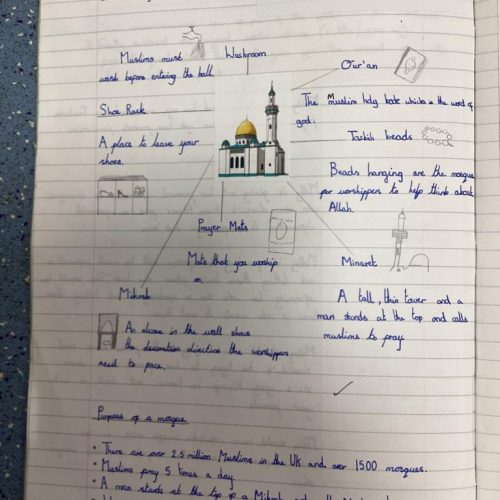 Washroom
Muslims must
wash before entering the hall.
Qur'an
The Muslim holy book which is the word of
god.
Shoe Rack
A place to leave your
shoes.
Tasbih beads
Beads hanging are the mosque
for worshippers to help think about
Allah.
Prayer Mats
Mats that you worship
on
Minaret
A tall, thin tower and a
man stands at the top and calls
muslims to pray
Mihrab
An alcove in the wall shows
the decoration direction the worshippers
need to face.
Purpose of a mosque
• There are over 2.5 million Muslims in the UK and over 1500 mosques.
• Muslims pray 5 times a day.
• A man stands at the top of a Mihrab and calls